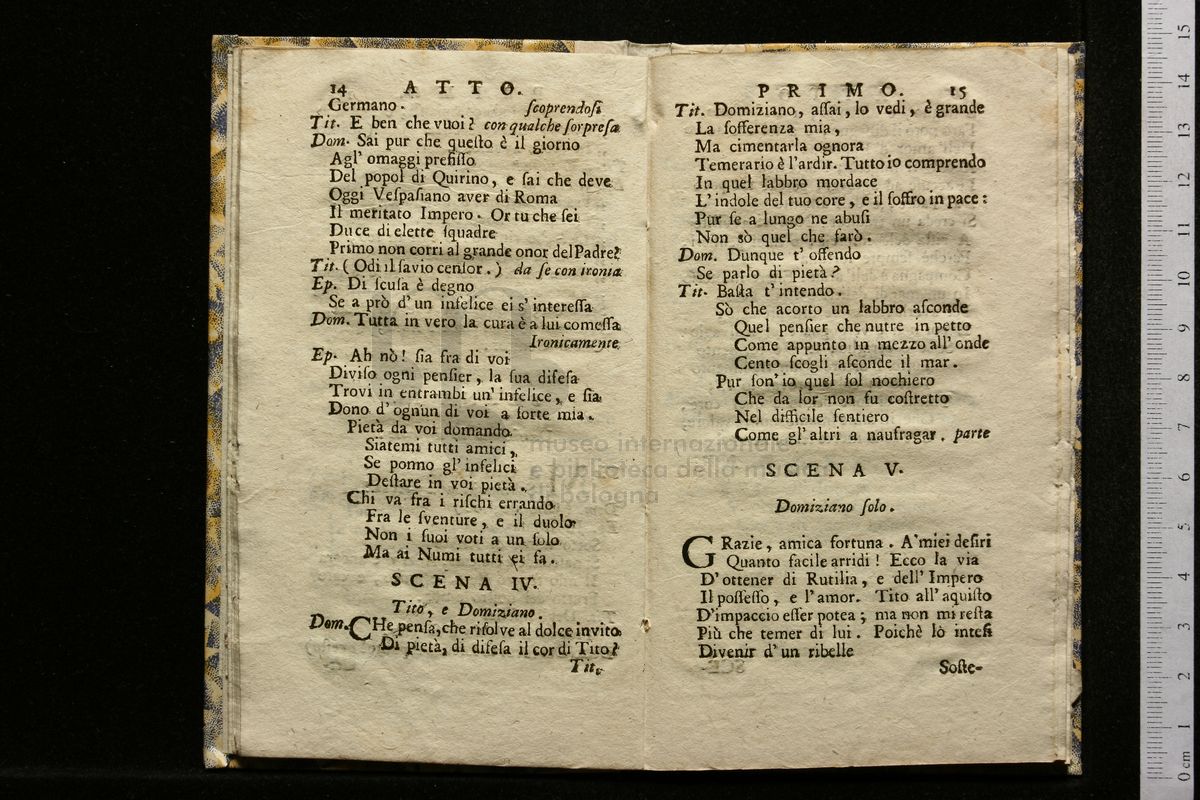 14 ATTO.
Germano. ſcoprendoſi
Tit. E ben che vuoi? con qualche ſorpreſa
Dom. Sai pur che queſto è il giorno
Agl' omaggi prefiſſo
Del popol di Quirino, e ſai che deve
Oggi Veſpaſiano aver di Roma
Il meritato Impero. Or tu che ſei
Duce di elette ſquadre
Primo non corri al grande onor del Padre?
Tit. (Odi il ſavio cenſor.) da ſe con ironia
Ep. Di ſcuſa è degno
Se a prò d' un infelice ei s' intereſſa
Dom. Tutta in vero la cura è a lui comeſſa
Ironicamente
Ep. Ah nò! ſia fra di voi
Diviſo ogni penſier, la ſua difeſa
Trovi in entrambi un' infelice, e ſia
Dono d' ognun di voi a ſorte mia.
Pietà da voi domando
Siatemi tutti amici,
Se ponno gl' infelici
Deſtare in voi pietà.
Chi va fra i riſchi errando
Fra le ſventure, e il duolo
Non i ſuoi voti a un ſolo
Ma ai Numi tutti ei fa.
SCENA IV.
Tito, e Domiziano.
Dom. CHe penſa, che riſolve al dolce invito
Di pietà, di difeſa il cor di Tito?
Tit.
PRIMO. 15
Tit. Domiziano, aſſai, lo vedi, è grande
La ſofferenza mia,
Ma cimentarla ognora
Temerario è l'ardir. Tutto io comprendo
In quel labbro mordace
L' indole del tuo core, e il ſoffro in pace:
Pur ſe a lungo ne abuſi
Non sò quel che farò.
Dom. Dunque t' offendo
Se parlo di pietà?
Tit. Baſta t' intendo.
Sò che acorto un labbro aſconde
Quel penſier che nutre in petto
Come appunto in mezzo all' onde
Cento ſcogli aſconde il mar.
Pur ſon' io quel ſol nochiero
Che da lor non fu coſtretto
Nel difficile ſentiero
Come gl' altri a naufragar. parte
SCENA V.
Domiziano ſolo.
GRazie, amica fortuna. A' miei deſiri
Quanto facile arridi! Ecco la via
D' ottener di Rutilia, e dell' Impero
Il poſſeſſo, e l'amor. Tito all' aquiſto
D'impaccio eſſer potea; ma non mi reſta
Più che temer di lui. Poichè lò inteſi
Divenir d' un ribelle
Soſte-
museo internazionale
e biblioteca della m
di bologna
0 cm 1 2 3 4 5 6 7 8 9 10 11 12 13 14 15